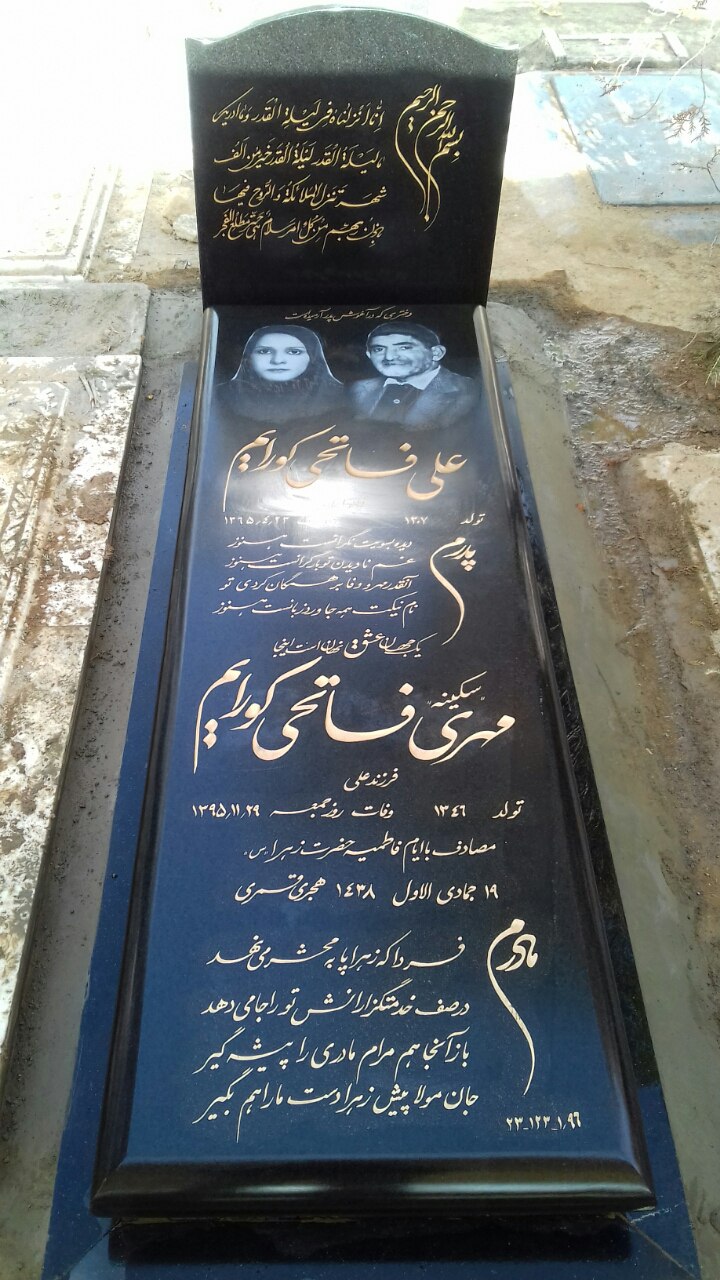 بسم الله الرحمن الرحیم
انا انزلناه فی لیلة القدر و ما ادریک
ما لیلة القدر لیلة القدر خیر من الف
شهر تنزل الملائکة والروح فیها
باذن ربهم من کل امر سلام هی حتی مطلع الفجر
دختری که در آغوش پدر آرمیده است
علی فاتحی کورایم
تولد ۱۳۰۷ ۱۳۶۵٫۴٫۲۳
پدرم
دیده بسویت نگرانست هنوز
غم نادیدن تو بار گرانست هنوز
آنقدر مهر و وفا بر همگان کردی تو
نام نیکت همه جا ورد زبانست هنوز
یک جهان عشق نهان است اینجا
مهری "سکینه" فاتحی کورایم
فرزند علی
تولد ۱۳۴۶ وفات روز جمعه ۱۳۹۵٫۱۱٫۲۹
مصادف با ایام فاطمیه حضرت زهرا (س)
۱۹ جمادی الاول ۱۴۳۸ هجری قمری
مادرم
فردا که زهرا پا به محشر می نهد
در صف خدمتگزارانش تو را جا می دهد
باز آنجا هم مرام مادری را پیشه گیر
جان مولا پیش زهرا دست ما را هم بگیر
۲۳-۱۲۳-۱٫۹۶